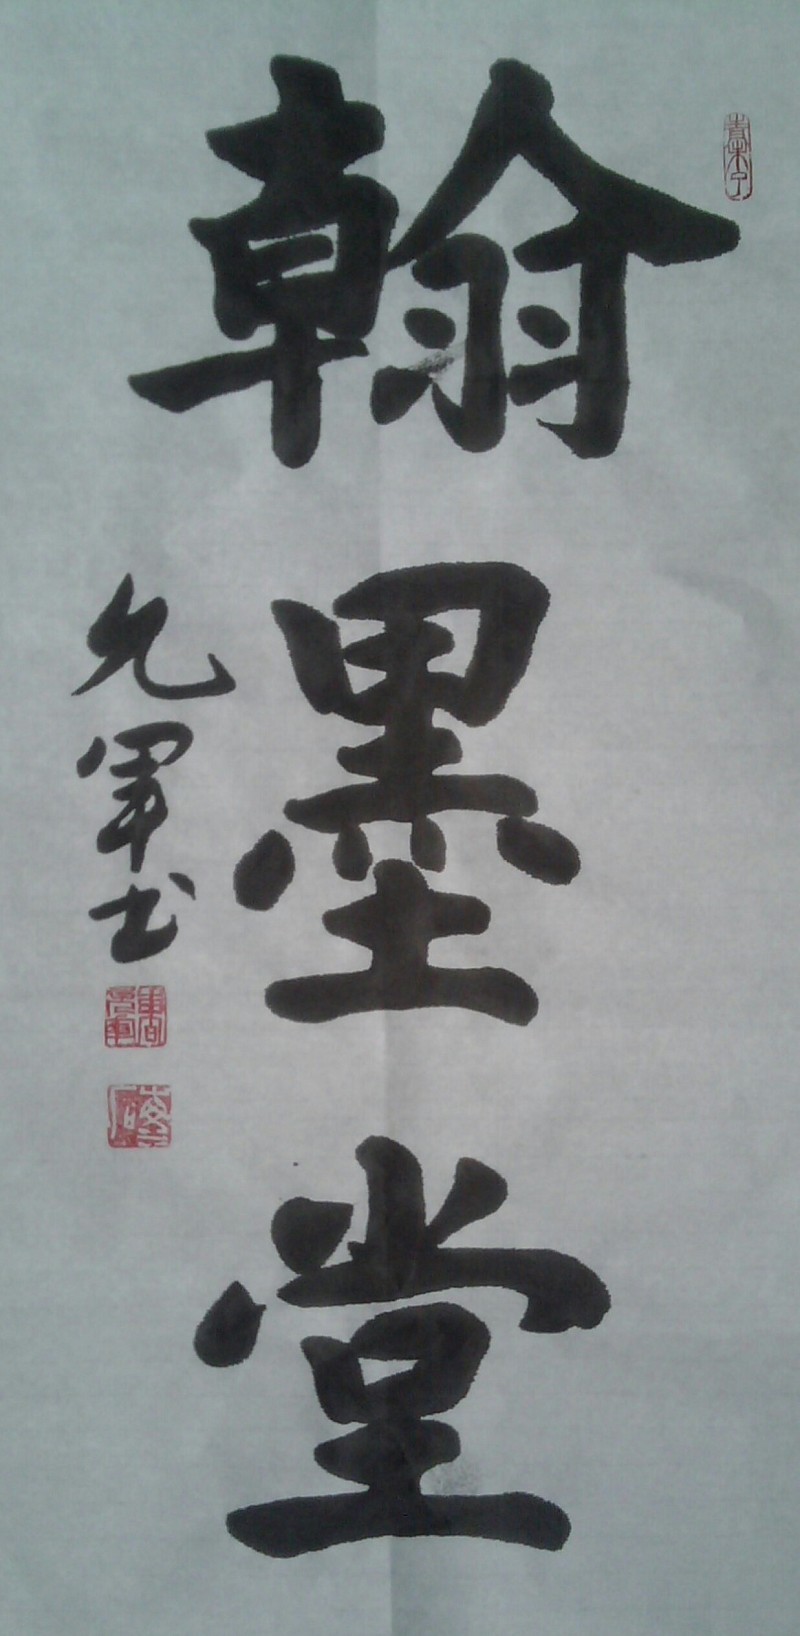 翰墨堂
允军书